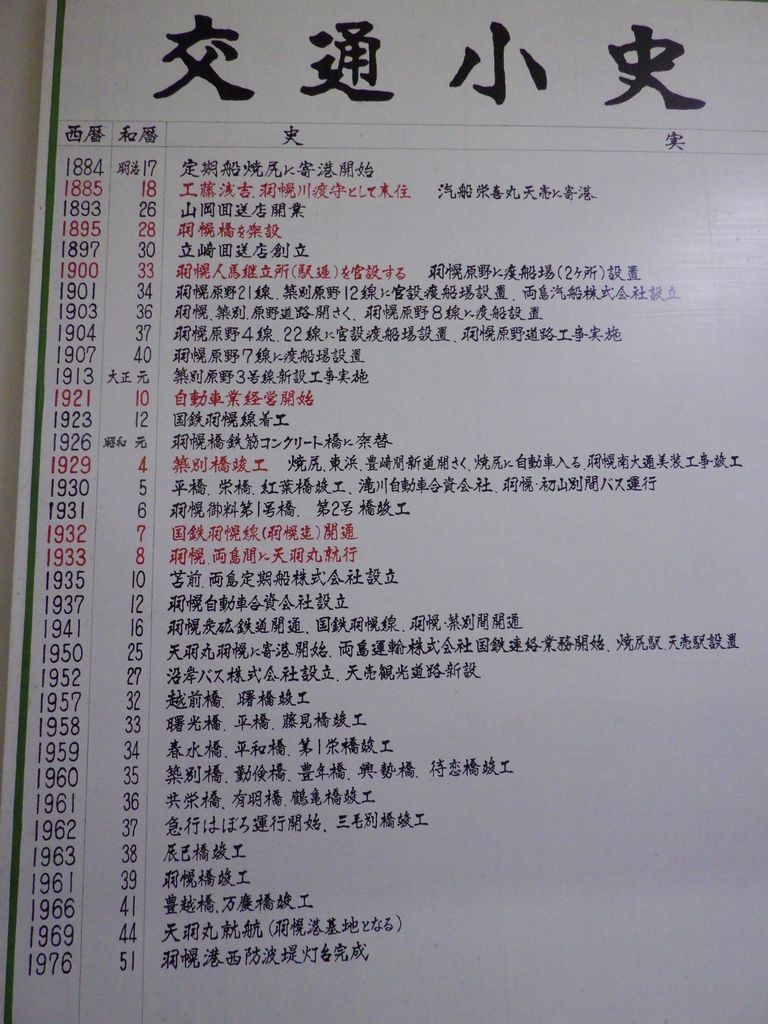 交通小史
西暦 和暦 史 実
1884 明治17 定期船焼尻に寄港開始
1885 18 工藤浅吉、羽幌川渡守として来住 汽船栄喜丸天売に寄港
1893 26 山岡回送店開業
1895 28 羽幌橋を架設
1897 30 立崎回送店創立
1900 33 羽幌人馬継立所(駅逓)を官設する 羽幌原野に渡船場(2ヶ所)設置
1901 34 羽幌原野21線、築別原野12線に官設渡船場設置、両島汽船株式会社設立
1903 36 羽幌、築別、原野道路開さく、羽幌原野8線に渡船設置
1904 37 羽幌原野4線、22線に官設渡船場設置、羽幌原野道路工事実施
1907 40 羽幌原野7線に渡船場設置
1913 大正元 築別原野3号線新設工事実施
1921 10 自動車業経営開始
1923 12 国鉄羽幌線着工
1926 昭和元 羽幌橋鉄筋コンクリート橋に架替
1929 4 築別橋竣工 焼尻、東浜、豊崎間新道開さく、焼尻に自動車入る、羽幌南大通美装工事竣工
1930 5 平橋、栄橋、紅葉橋竣工、滝川自動車合資会社、羽幌・初山別間バス運行
1931 6 羽幌御料第1号橋、第2号橋竣工
1932 7 国鉄羽幌線(羽幌迄)開通
1933 8 羽幌、両島間に天羽丸就行
1935 10 苫前、両島定期船株式会社設立
1937 12 羽幌自動車合資会社設立
1941 16 羽幌炭砿鉄道開通、国鉄羽幌線、羽幌・築別間開通
1950 25 天羽丸羽幌に寄港開始、両島運輸株式会社国鉄連絡業務開始、焼尻駅、天売駅設置
1952 27 沿岸バス株式会社設立、天売観光道路新設
1957 32 越前橋、曙橋竣工
1958 33 曙光橋、平橋、藤見橋竣工
1959 34 春水橋、平和橋、第1栄橋竣工
1960 35 築別橋、勤倹橋、豊年橋、興勢橋、待恋橋竣工
1961 36 共栄橋、有明橋、鶴亀橋竣工
1962 37 急行はぼろ運行開始、三毛別橋竣工
1963 38 辰巳橋竣工
1961 39 羽幌橋竣工
1966 41 豊越橋、万慶橋竣工
1969 44 天羽丸就航(羽幌港基地となる)
1976 51 羽幌港西防波堤灯台完成